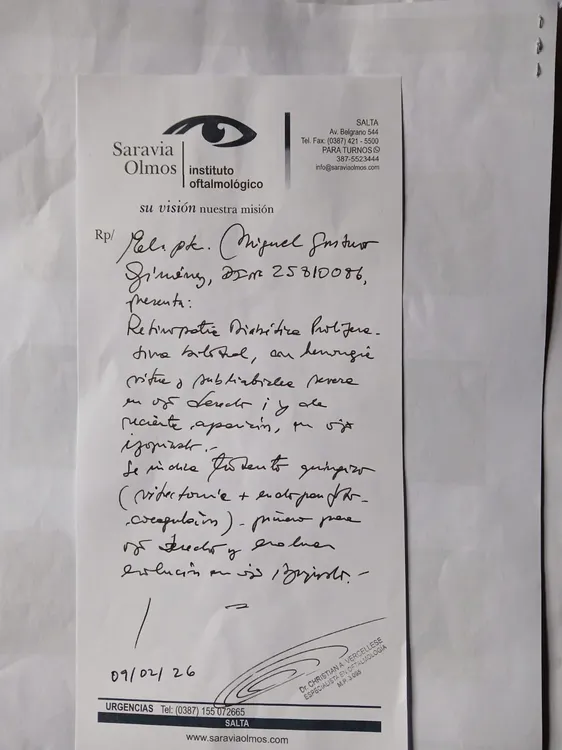 Saravia
Olmos
instituto
oftalmológico
su visión nuestra misión
SALTA
Av. Belgrano 544
Tel. Fax: (0387) 421 - 5500
PARA TURNOS
387-5523444
info@saraviaolmos.com
Rp/
El pte. Miguel Gustavo
Giménez, DNI 25810086,
presenta:
Retinopatía Diabética Prolifera-
tiva bilateral, con hemorragia
vítrea y subhialoidea severa
en ojo derecho; y de
reciente aparición, en ojo
izquierdo.-
Se indica tratamiento quirúrgico
(vitrectomía + endopanfoto-
coagulación) - primero para
ojo derecho y evaluar
evolución en ojo izquierdo.-
09/02/26
Dr. CHRISTIAN A. VERGELLESE
ESPECIALISTA EN OFTALMOLOGÍA
URGENCIAS Tel: (0387) 155 072665
SALTA
www.saraviaolmos.com